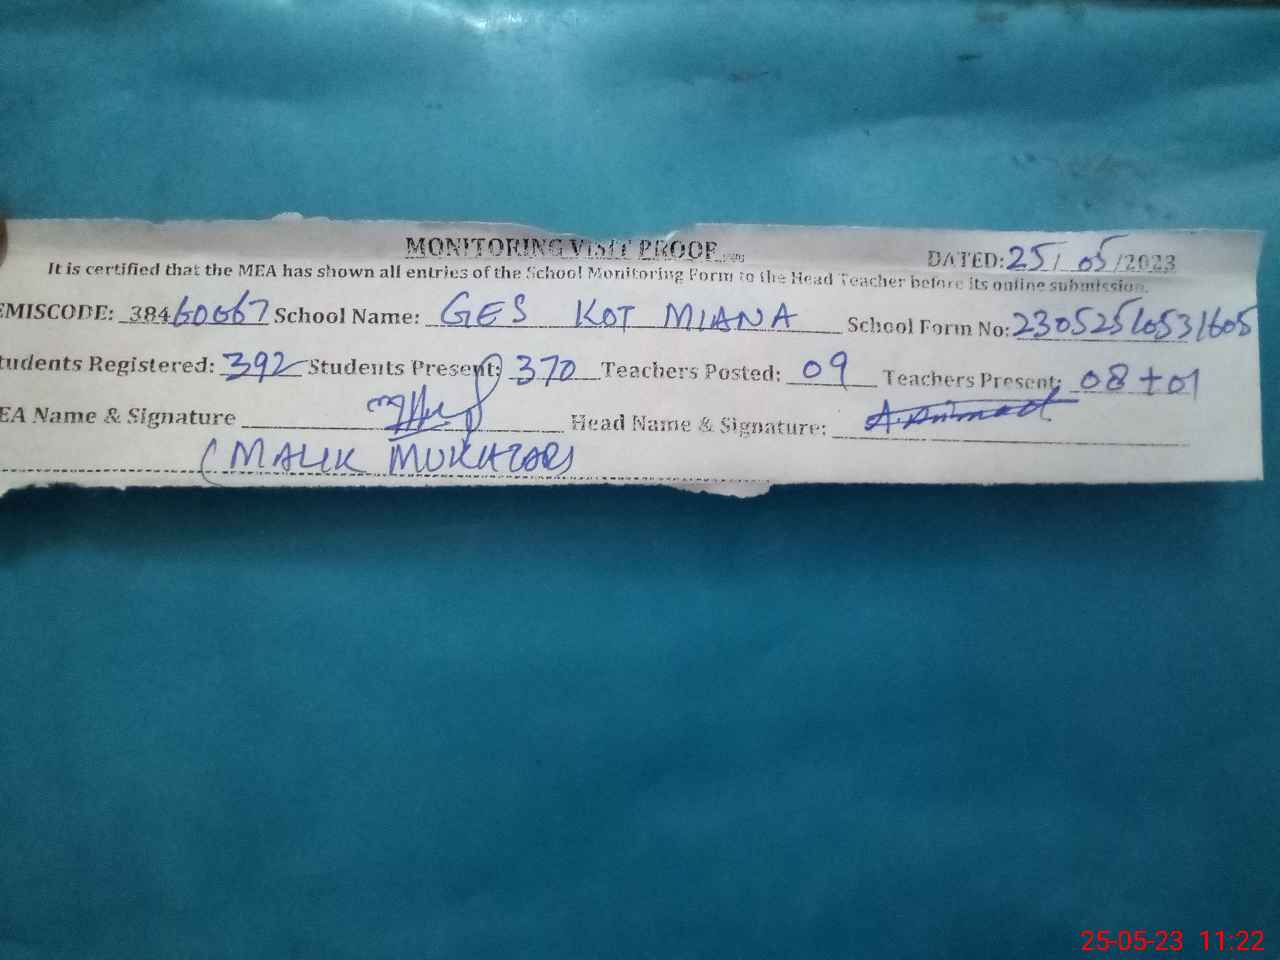 MONITORING VISIT PROOF
DATED: 25/05/2023
It is certified that the MEA has shown all entries of the School Monitoring Form to the Head Teacher before its online submission.
EMISCODE: 38460067 School Name: GES KOT MIANA School Form No: 23052510531605
tudents Registered: 392 Students Present: 370 Teachers Posted: 09 Teachers Present: 08+01
EA Name & Signature Head Name & Signature:
(MALIK MUKHTAR)
25-05-23 11:22